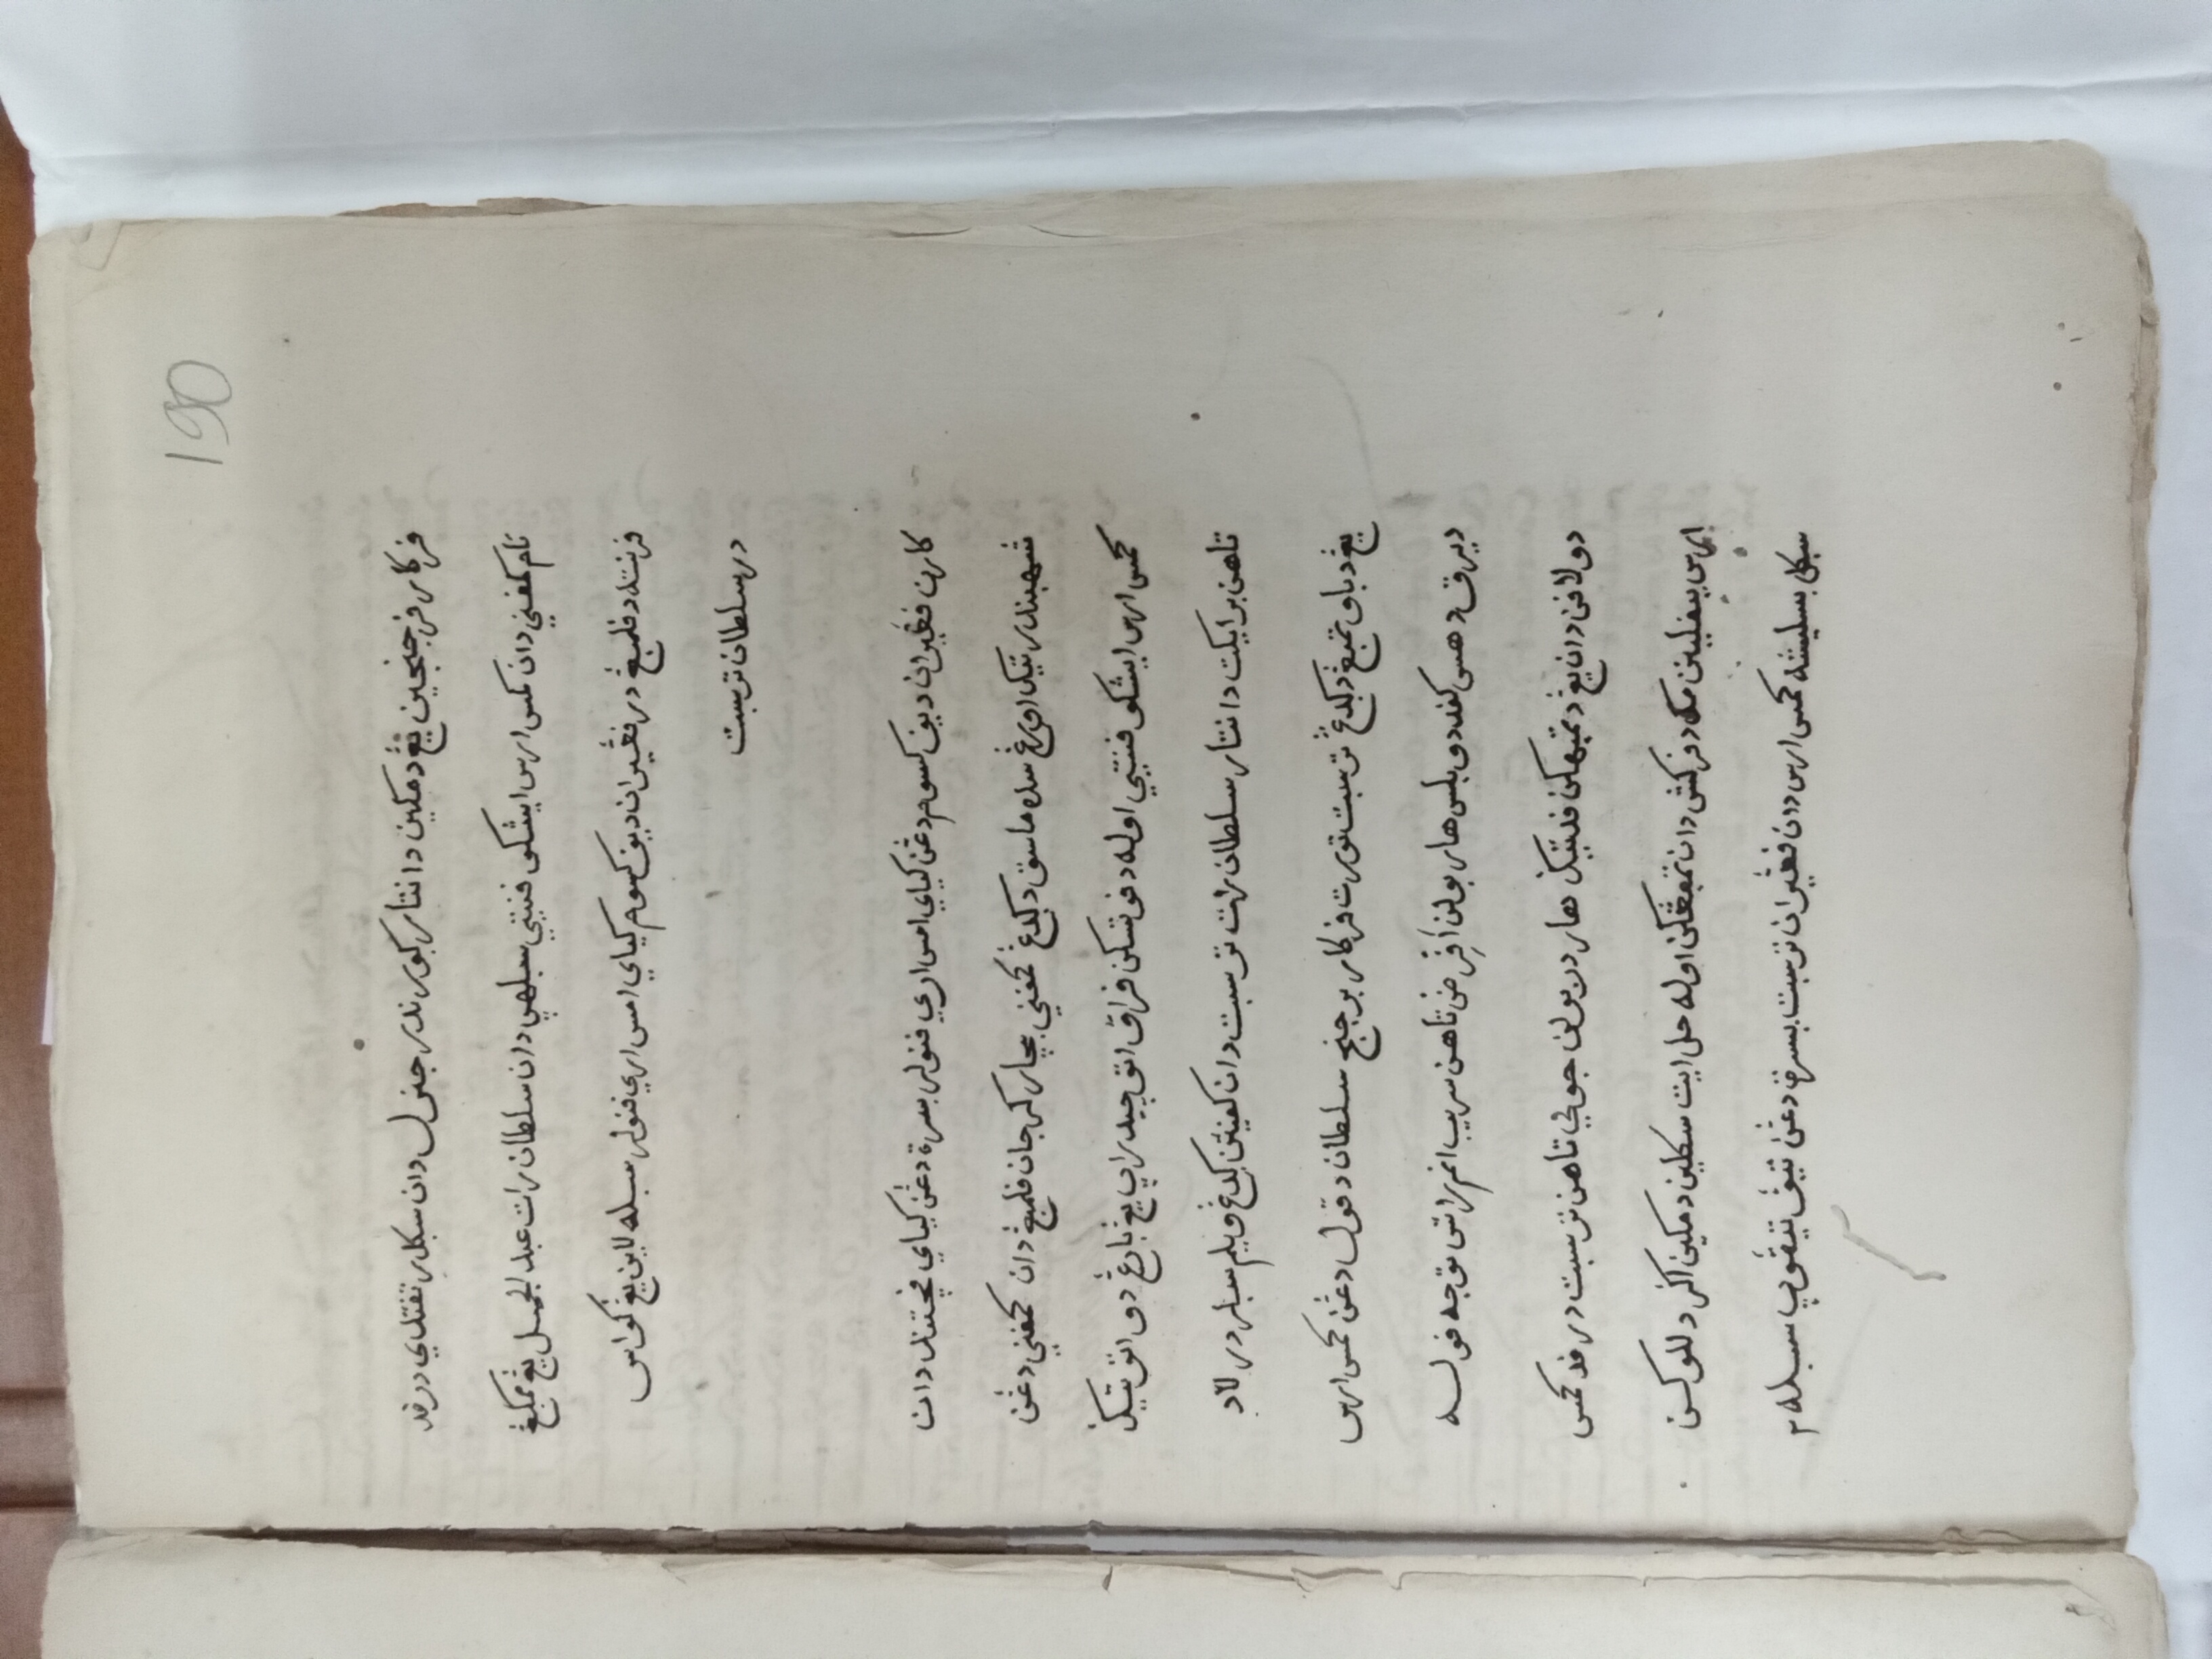 190
فركار فرجنجين يڠ دمكين دانتار كورندر جنرل دان سكل رتفتداي در فد
نام كمفني دان كمس ارس ايشكو فنتيي سبلهي دان سلطان رات عبد الجميل يڠ ممكڠ
فرنته د فلمبڠ در فڠيران ديف كسوم كياي امس اري فنولر سبله لاين يڠ كواس
در سلطان ترسبت
كارن فڠيران ديف كسوم دڠن كياي امس اري فنولر بسرة دڠن كياي فچتند دان
شهبندر تيک اورڠ سده ماسق د كدڠ كمفني بچار كرجان فلمبڠ دان كمفني دڠن
كمس ارس ايشكو فنتيي اوله د فوتسكن فراق اتو چيدراي يڠ بارڠ دو اتو تيک
تاهن برايكت دانتار سلطان رات ترسبت دان كفيتن كدڠ ويلم سبلر در لاد
يڠ د باو تمبڠ د كدڠ ترسبت تورت فركار برجنج سلطان د قول دڠن كمس ارس
ديرق دهس كفد دو بلس هار بولن أفرِض تاهن سريب انم راتس توجه فوله
دولافن دان يڠ د تمبهكن فد تيک هار در بولن جولي تاهن ترسبت در فد كمس
ارس بيفليين مك د فركش دان تمبڠكن اوله حل ايت سكلين دمكين اكر د للوكسن
سكل بسليشه كمس ارس دان فڠيران ترسبت بسرت دڠن تيڤ تيڤوي سبله ٢